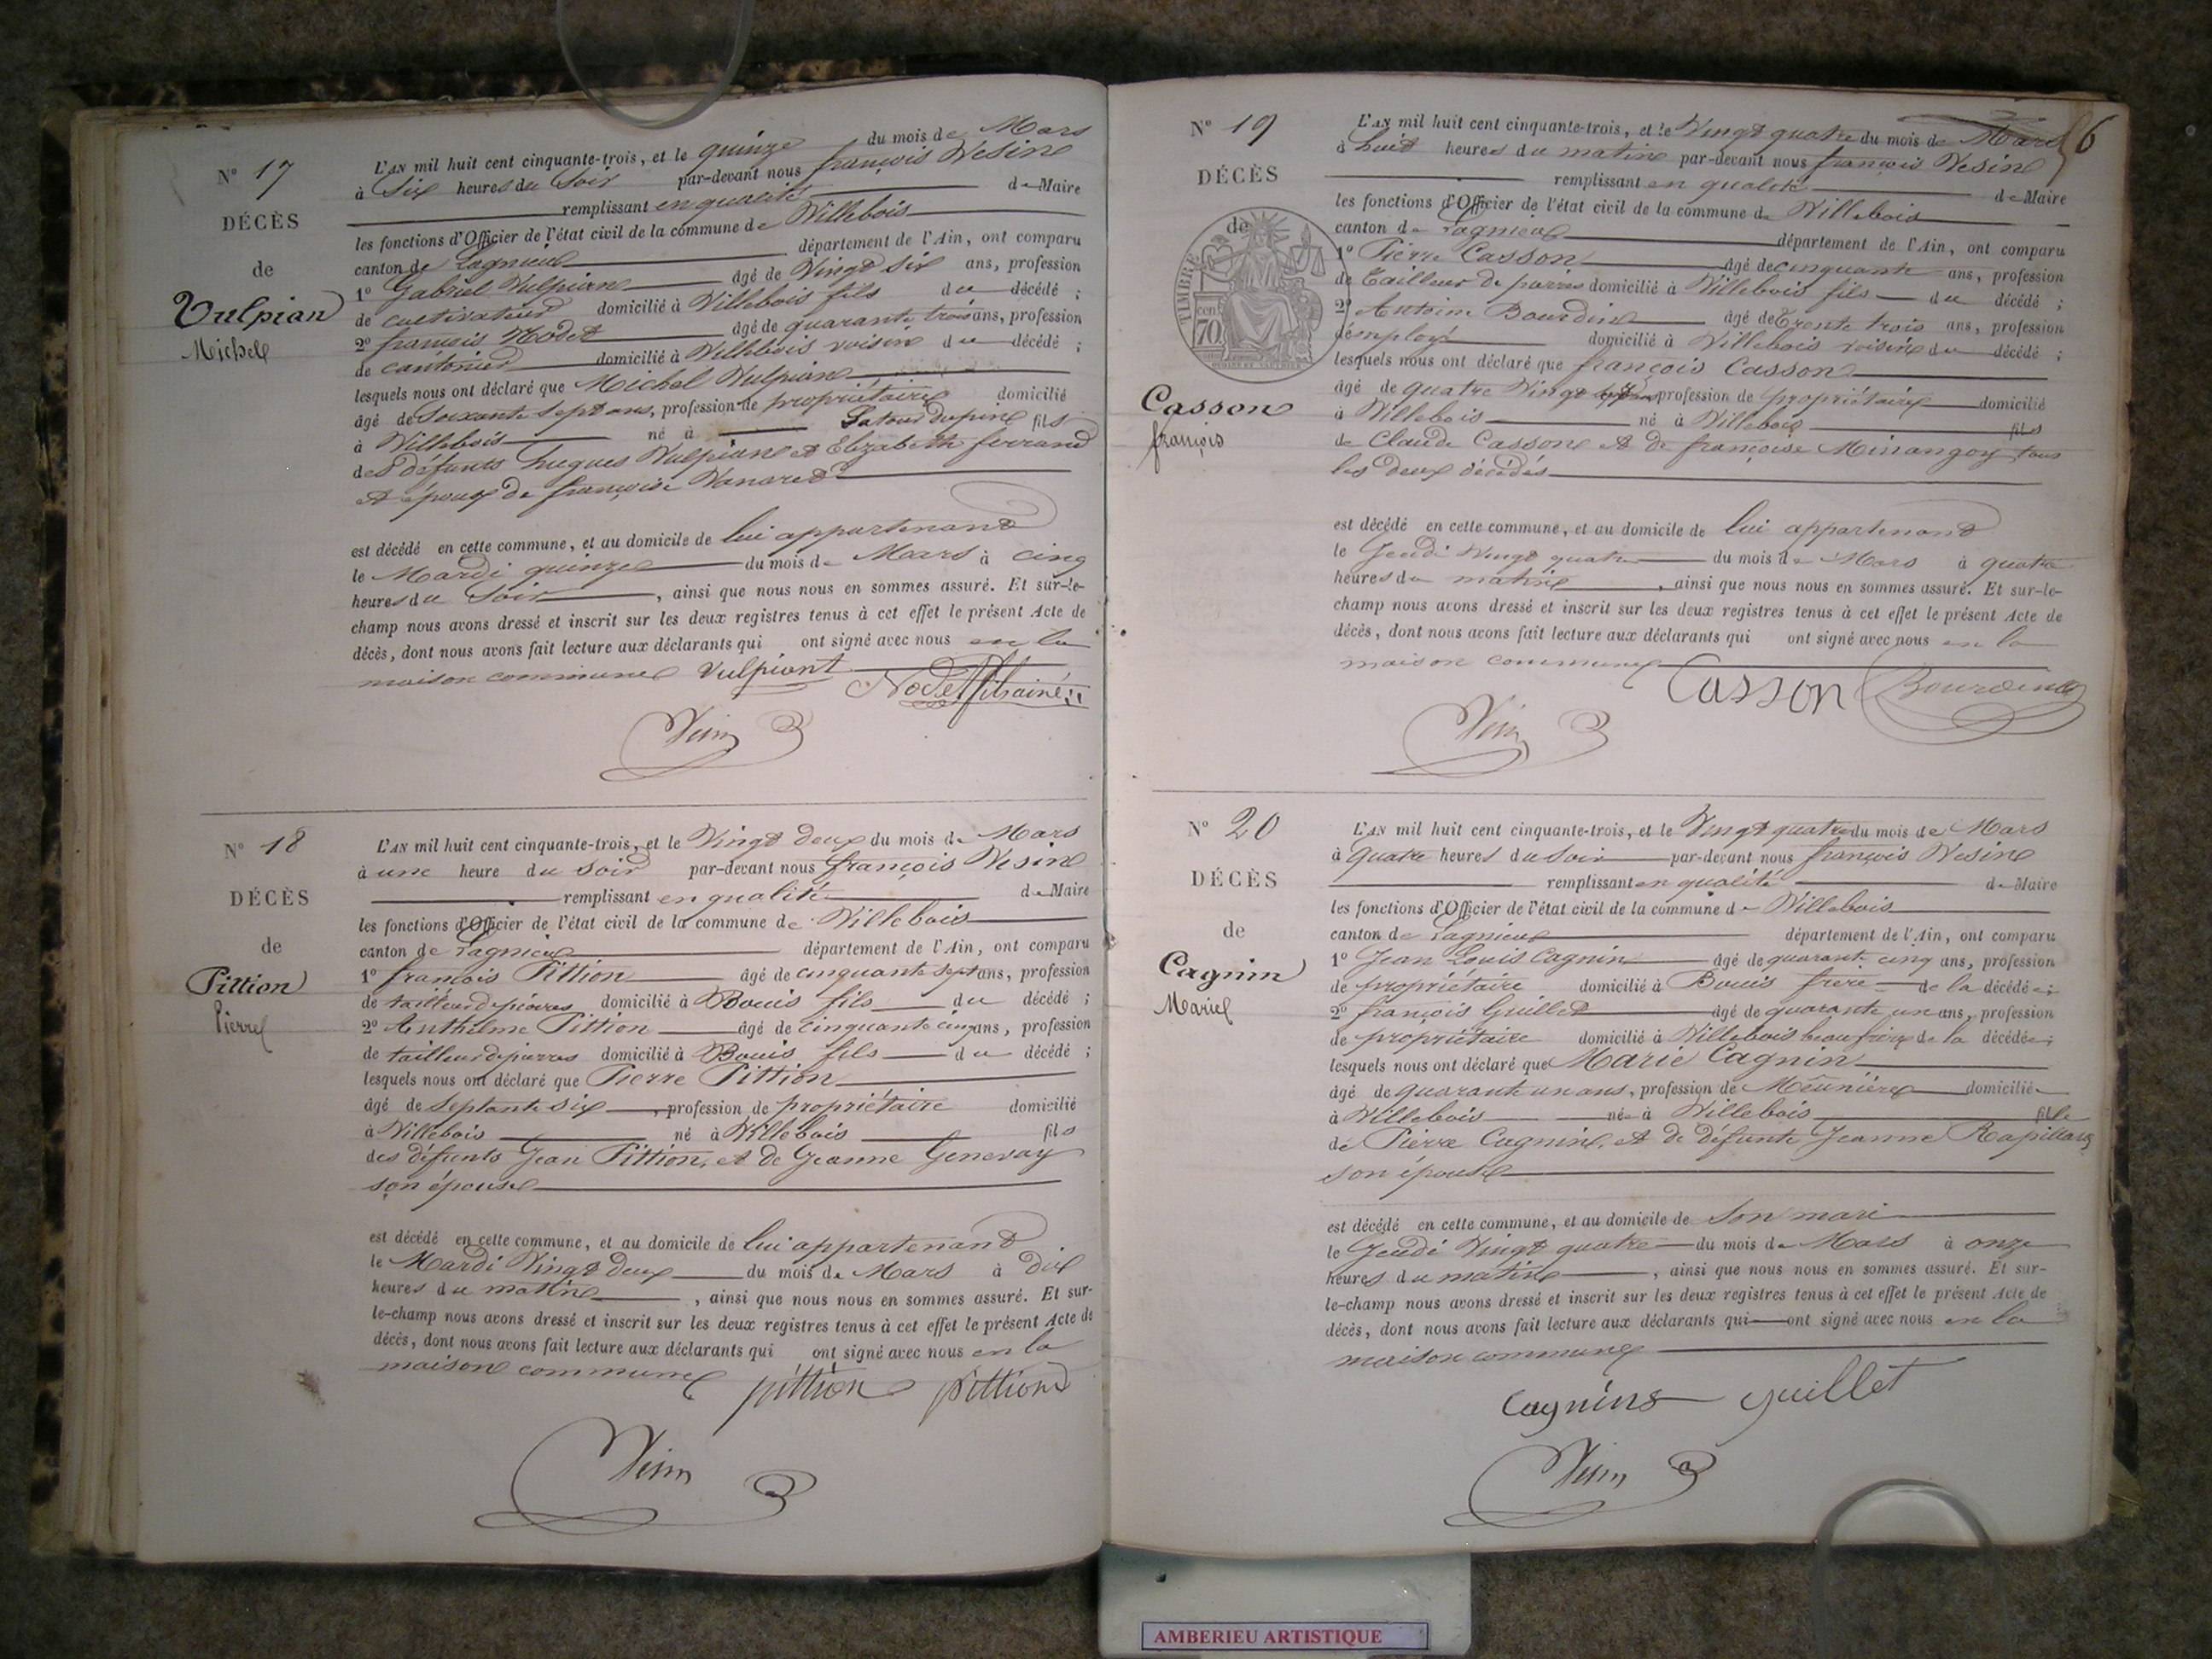 N° 17
DÉCÈS
de
Vulpian
Michel
L'AN mil huit cent cinquante-trois, et le quinze du mois de Mars
à Six heures du Soir par-devant nous françois Vesin
remplissant en qualité de Maire
les fonctions d'Officier de l'état civil de la commune de Villebois
canton de Lagnieu département de l'Ain, ont comparu
1° Gabriel Vulpian âgé de Vingt six ans, profession
de cultivateur domicilié à Villebois fils du décédé ;
2° françois Nodet âgé de quarante trois ans, profession
de cantonier domicilié à Villebois voisin du décédé ;
lesquels nous ont déclaré que Michel Vulpian
âgé de Soixante sept ans, profession de propriétaire domicilié
à Villebois né à Latour dupin fils
des défunts hugues Vulpian et Elizabeth ferrand
et époux de françoise Vanaret
est décédé en cette commune, et au domicile de lui appartenant
le Mardi quinze du mois de Mars à cinq
heures du Soir, ainsi que nous nous en sommes assuré. Et sur-le-
champ nous avons dressé et inscrit sur les deux registres tenus à cet effet le présent Acte de
décès, dont nous avons fait lecture aux déclarants qui ont signé avec nous en la
maison commune Vulpiant Nodet fils ainé
Vesin
N° 18
DÉCÈS
de
Pittion
Pierre
L'AN mil huit cent cinquante-trois, et le Vingt deux du mois de Mars
à une heure du soir par-devant nous françois Vesin
remplissant en qualité de Maire
les fonctions d'Officier de l'état civil de la commune de Villebois
canton de Lagnieu département de l'Ain, ont comparu
1° françois Pittion âgé de cinquante sept ans, profession
de tailleur de pierres domicilié à Bouis fils du décédé ;
2° Anthelme Pittion âgé de cinquante cinq ans, profession
de tailleur de pierres domicilié à Bouis fils du décédé ;
lesquels nous ont déclaré que Pierre Pittion
âgé de Septante six, profession de propriétaire domicilié
à Villebois né à Villebois fils
des défunts Jean Pittion, et de Jeanne Genevay
son épouse
est décédé en cette commune, et au domicile de lui appartenant
le Mardi Vingt deux du mois de Mars à dix
heures du matin, ainsi que nous nous en sommes assuré. Et sur-
le-champ nous avons dressé et inscrit sur les deux registres tenus à cet effet le présent Acte de
décès, dont nous avons fait lecture aux déclarants qui ont signé avec nous en la
maison commune pittion pittion
Vesin
6
N° 19
DÉCÈS
de
TIMBRE
cen
70
Casson
françois
L'AN mil huit cent cinquante-trois, et le Vingt quatre du mois de Mars
à huit heures du matin par-devant nous françois Vesin
remplissant en qualité de Maire
les fonctions d'Officier de l'état civil de la commune de Villebois
canton de Lagnieu département de l'Ain, ont comparu
1° Pierre Casson âgé de cinquante ans, profession
de Tailleur de pierres domicilié à Villebois fils du décédé ;
2° Antoine Bourdin âgé de Trente trois ans, profession
d'employé domicilié à Villebois voisin du décédé ;
lesquels nous ont déclaré que françois Casson
âgé de quatre Vingt profession de propriétaire domicilié
à Villebois né à Villebois fils
de Claude Casson et de françoise Minangoy tous
les deux décédés
est décédé en cette commune, et au domicile de lui appartenant
le Jeudi Vingt quatre du mois de Mars à quatre
heures du matin, ainsi que nous nous en sommes assuré. Et sur-le-
champ nous avons dressé et inscrit sur les deux registres tenus à cet effet le présent Acte de
décès, dont nous avons fait lecture aux déclarants qui ont signé avec nous en la
maison commune Casson Bourdin
Vesin
N° 20
DÉCÈS
de
Cagnin
Marie
L'AN mil huit cent cinquante-trois, et le Vingt quatre du mois de Mars
à quatre heures du soir par-devant nous françois Vesin
remplissant en qualité de Maire
les fonctions d'Officier de l'état civil de la commune de Villebois
canton de Lagnieu département de l'Ain, ont comparu
1° Jean Louis Cagnin âgé de quarante cinq ans, profession
de propriétaire domicilié à Bouis frère de la décédée ;
2° françois Guillet âgé de quarante un ans, profession
de propriétaire domicilié à Villebois beau frère de la décédée ;
lesquels nous ont déclaré que Marie Cagnin
âgé de quarante un ans, profession de Meunière domiciliée
à Villebois née à Villebois fille
de Pierre Cagnin, et de défunte Jeanne Rapillard
son épouse
est décédé en cette commune, et au domicile de Son mari
le Jeudi Vingt quatre du mois de Mars à onze
heures du matin, ainsi que nous nous en sommes assuré. Et sur-
le-champ nous avons dressé et inscrit sur les deux registres tenus à cet effet le présent Acte de
décès, dont nous avons fait lecture aux déclarants qui ont signé avec nous en la
maison commune
Cagnin guillet
Vesin
AMBERIEU ARTISTIQUE